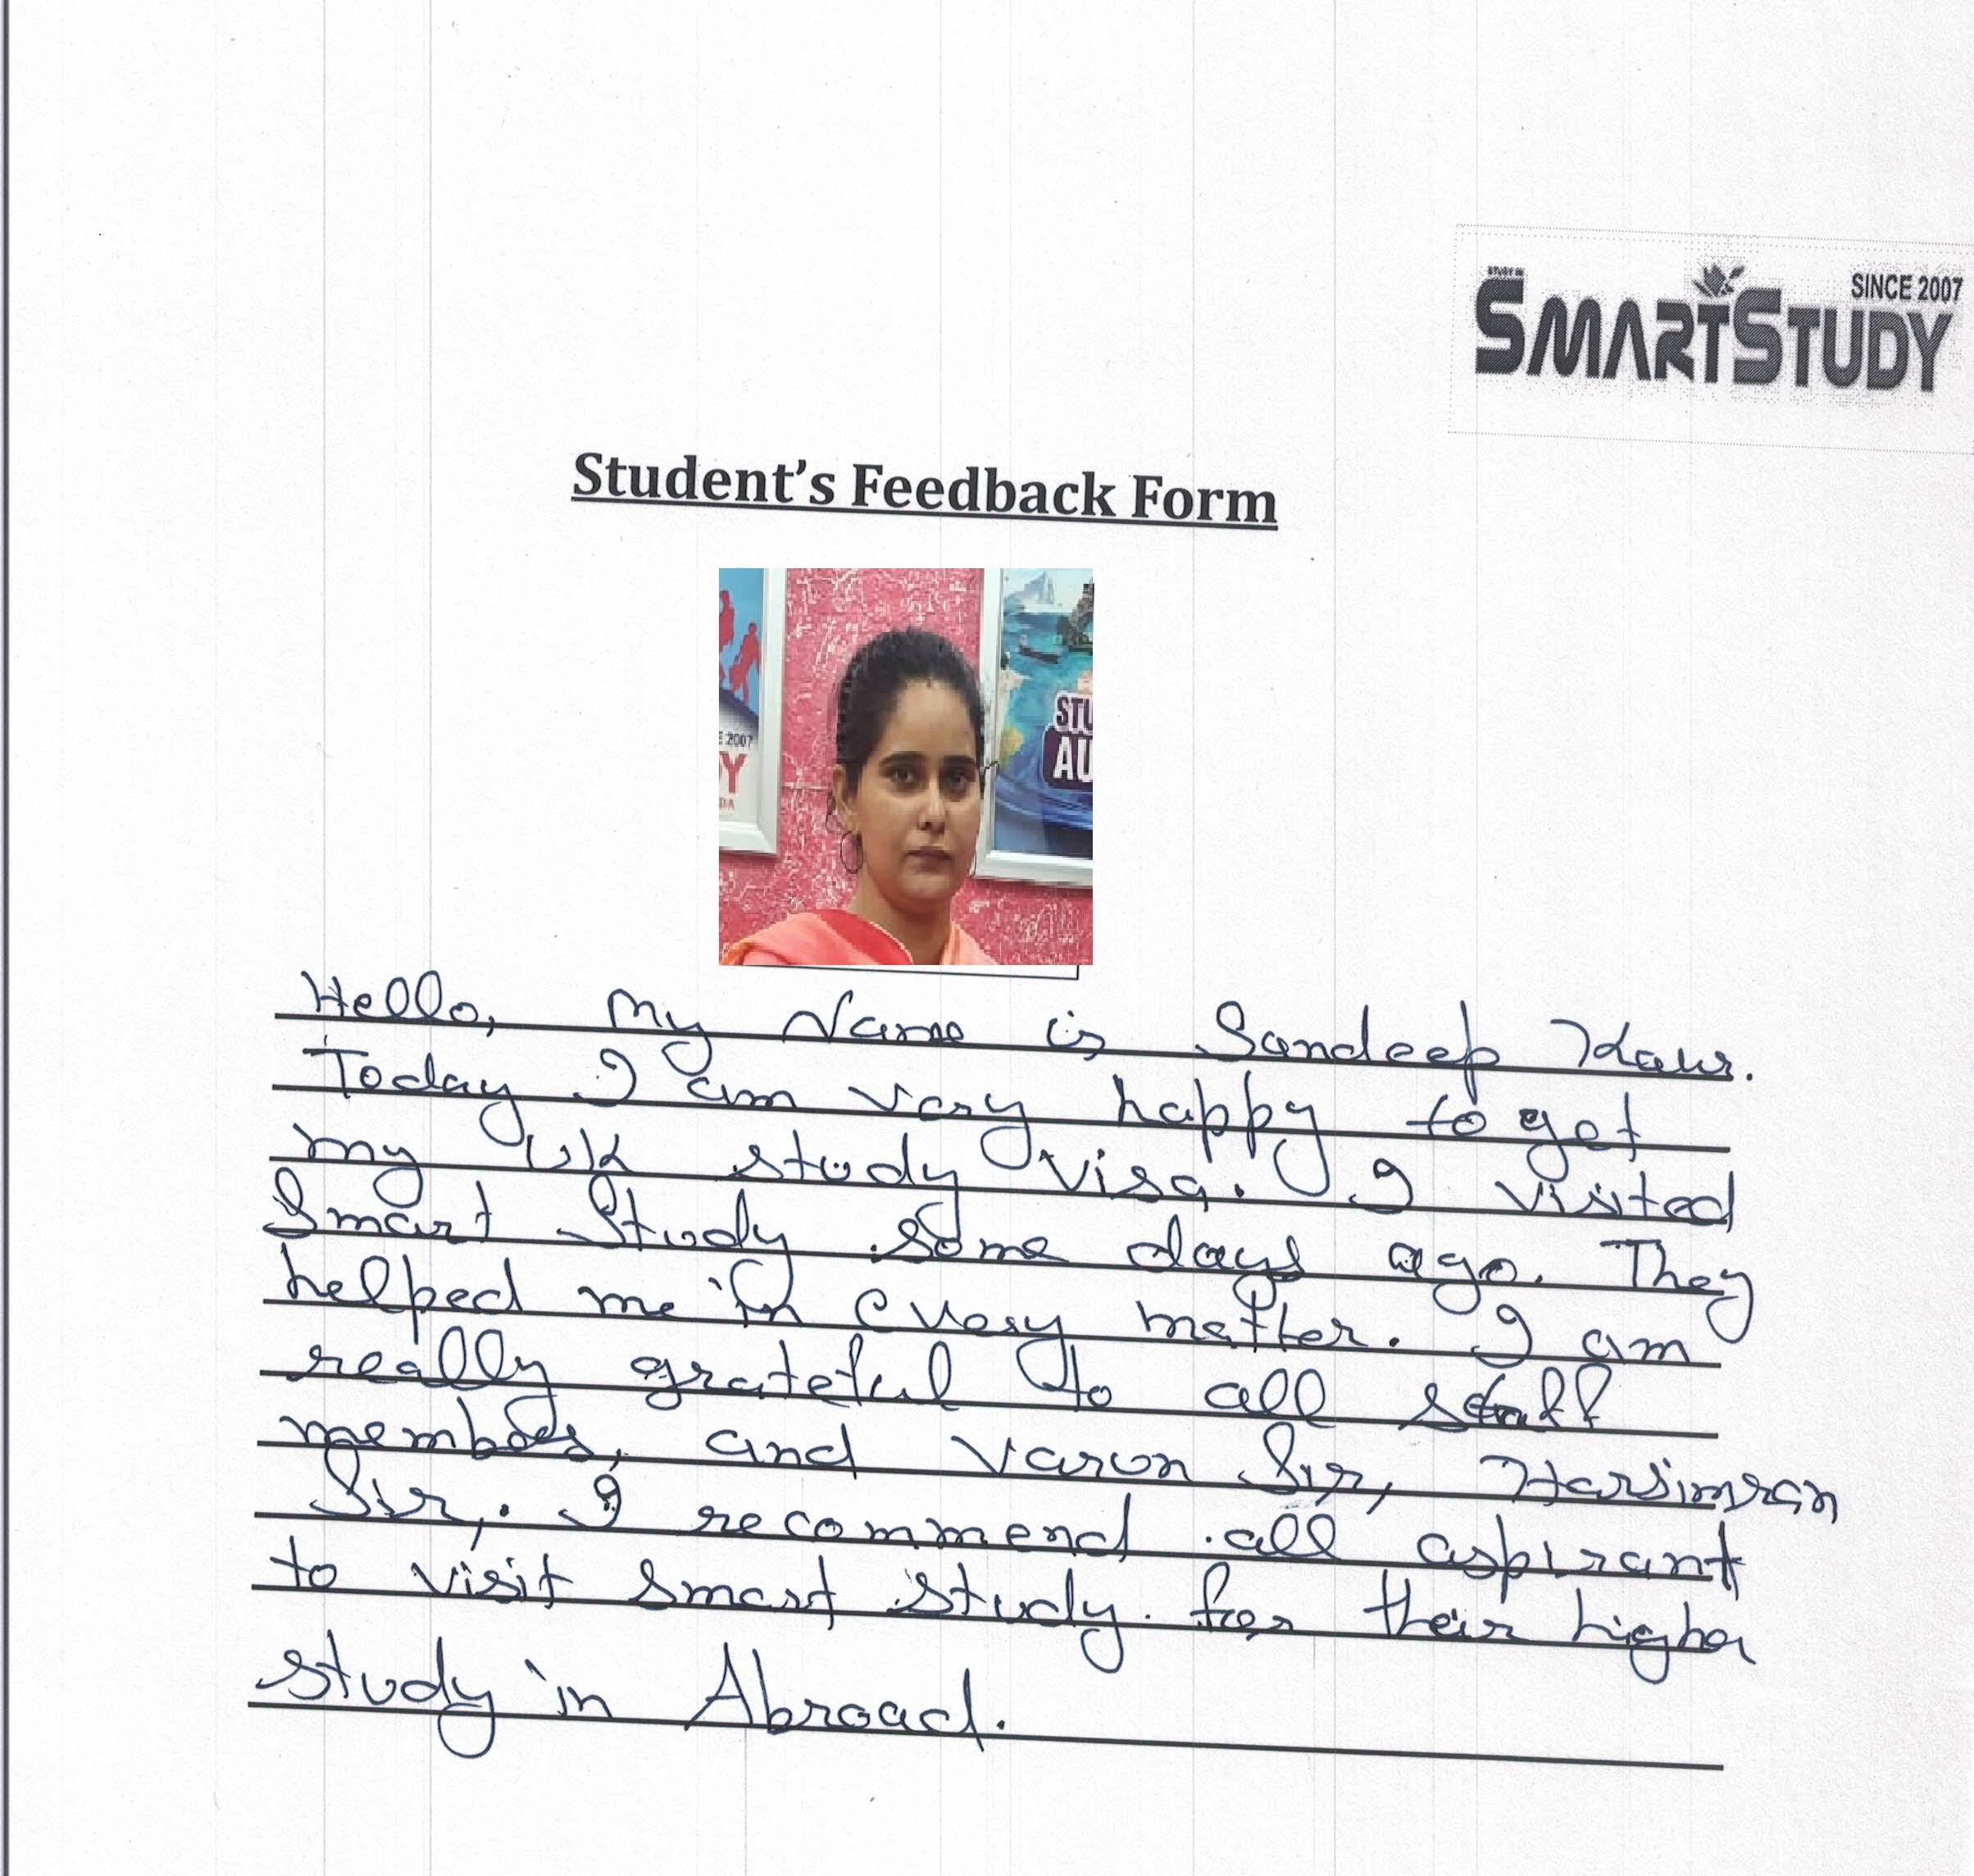 STUDY IN
SINCE 2007
SMARTSTUDY
Student's Feedback Form
E 2007
Y
DA
STU
AU
Hello, My Name is Sandeep Kaur.
Today I am very happy to get
my UK study visa. I visited
Smart Study some days ago. They
helped me in every matter. I am
really grateful to all staff
members, and Varun Sir, Harsimran
Sir,. I recommend all aspirant
to visit Smart Study for their higher
study in Abroad.